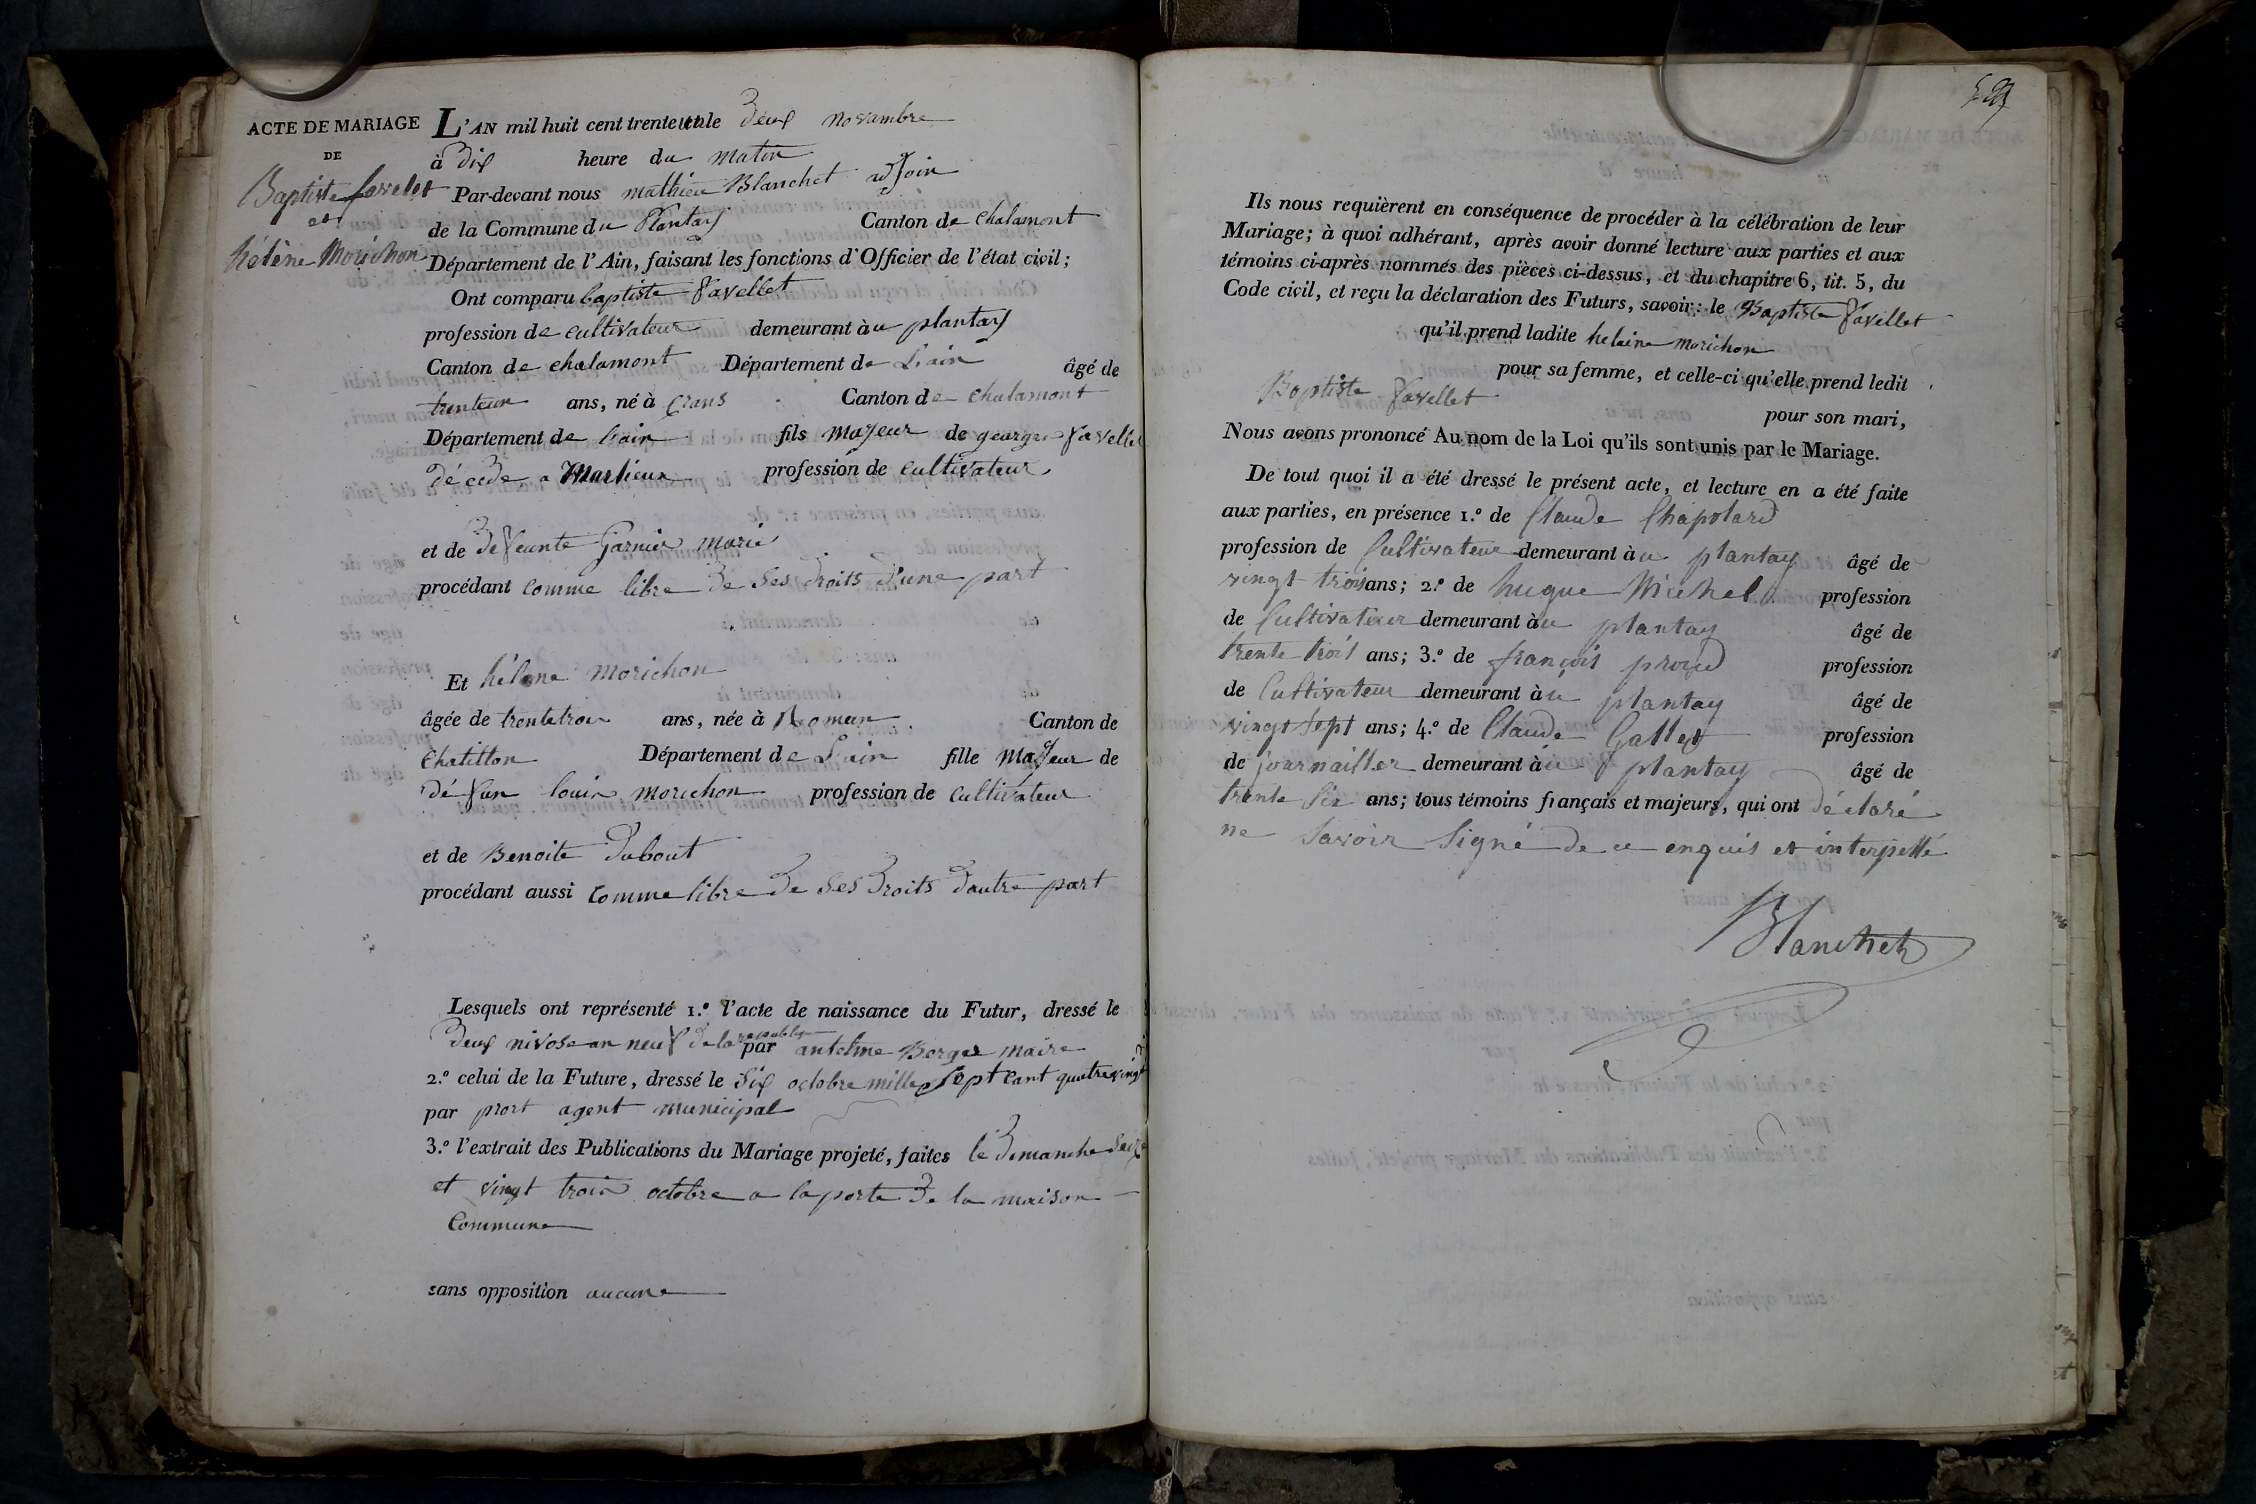 ACTE DE MARIAGE
DE
Baptiste favelet
et
hélène Morichon
L'AN mil huit cent trente un le deux novambre
à dix heure du matin
Par-devant nous mathieu Blanchet adjoin
de la Commune du Plantay Canton de chalamont
Département de l'Ain, faisant les fonctions d'Officier de l'état civil;
Ont comparu baptiste favellet
profession de cultivateur demeurant àu plantay
Canton de chalamont Département de L'ain âgé de
ans, né à Crans Canton de chalamont
Département de l'ain fils majeur de george favellet
décede a Marlieux profession de cultivateur
et de defeunte Garnier marie
procédant comme libre de ses droits d'une part
Et hélène morichon
âgée de trente trois ans, née à Romans Canton de
Chatillon Département de L'ain fille majeur de
défun louis morichon profession de cultivateur
et de Benoite Dubout
procédant aussi comme libre de ses droits d'autre part
Lesquels ont représenté 1.º l'acte de naissance du Futur, dressé le
deux nivose an neuf de la republique par antelme Berger maire
2.º celui de la Future, dressé le six octobre mille sept cant quatre vingt
par prost agent municipal
3.º l'extrait des Publications du Mariage projeté, faites le dimanche seize
et vingt trois octobre a la porte de la maison
Commune
sans opposition aucune
Ils nous requièrent en conséquence de procéder à la célébration de leur
Mariage; à quoi adhérant, après avoir donné lecture aux parties et aux
témoins ci-après nommés des pièces ci-dessus, et du chapitre 6, tit. 5, du
Code civil, et reçu la déclaration des Futurs, savoir: le Baptiste favellet
qu'il prend ladite helaine morichon
pour sa femme, et celle-ci qu'elle prend ledit
Baptiste favellet pour son mari,
Nous avons prononcé Au nom de la Loi qu'ils sont unis par le Mariage.
De tout quoi il a été dressé le présent acte, et lecture en a été faite
aux parties, en présence 1.º de Claude Chapolard
profession de Cultivateur demeurant àu plantay âgé de
vingt trois ans; 2.º de hugue Michel profession
de Cultivateur demeurant àu plantay âgé de
trente trois ans; 3.º de françois proud profession
de Cultivateur demeurant àu plantay âgé de
vingt sept ans; 4.º de Claude Gallet profession
de journailler demeurant àu plantay âgé de
trente six ans; tous témoins français et majeurs, qui ont déclaré
ne savoir signé de ce enquis et interpellé
Blanchet